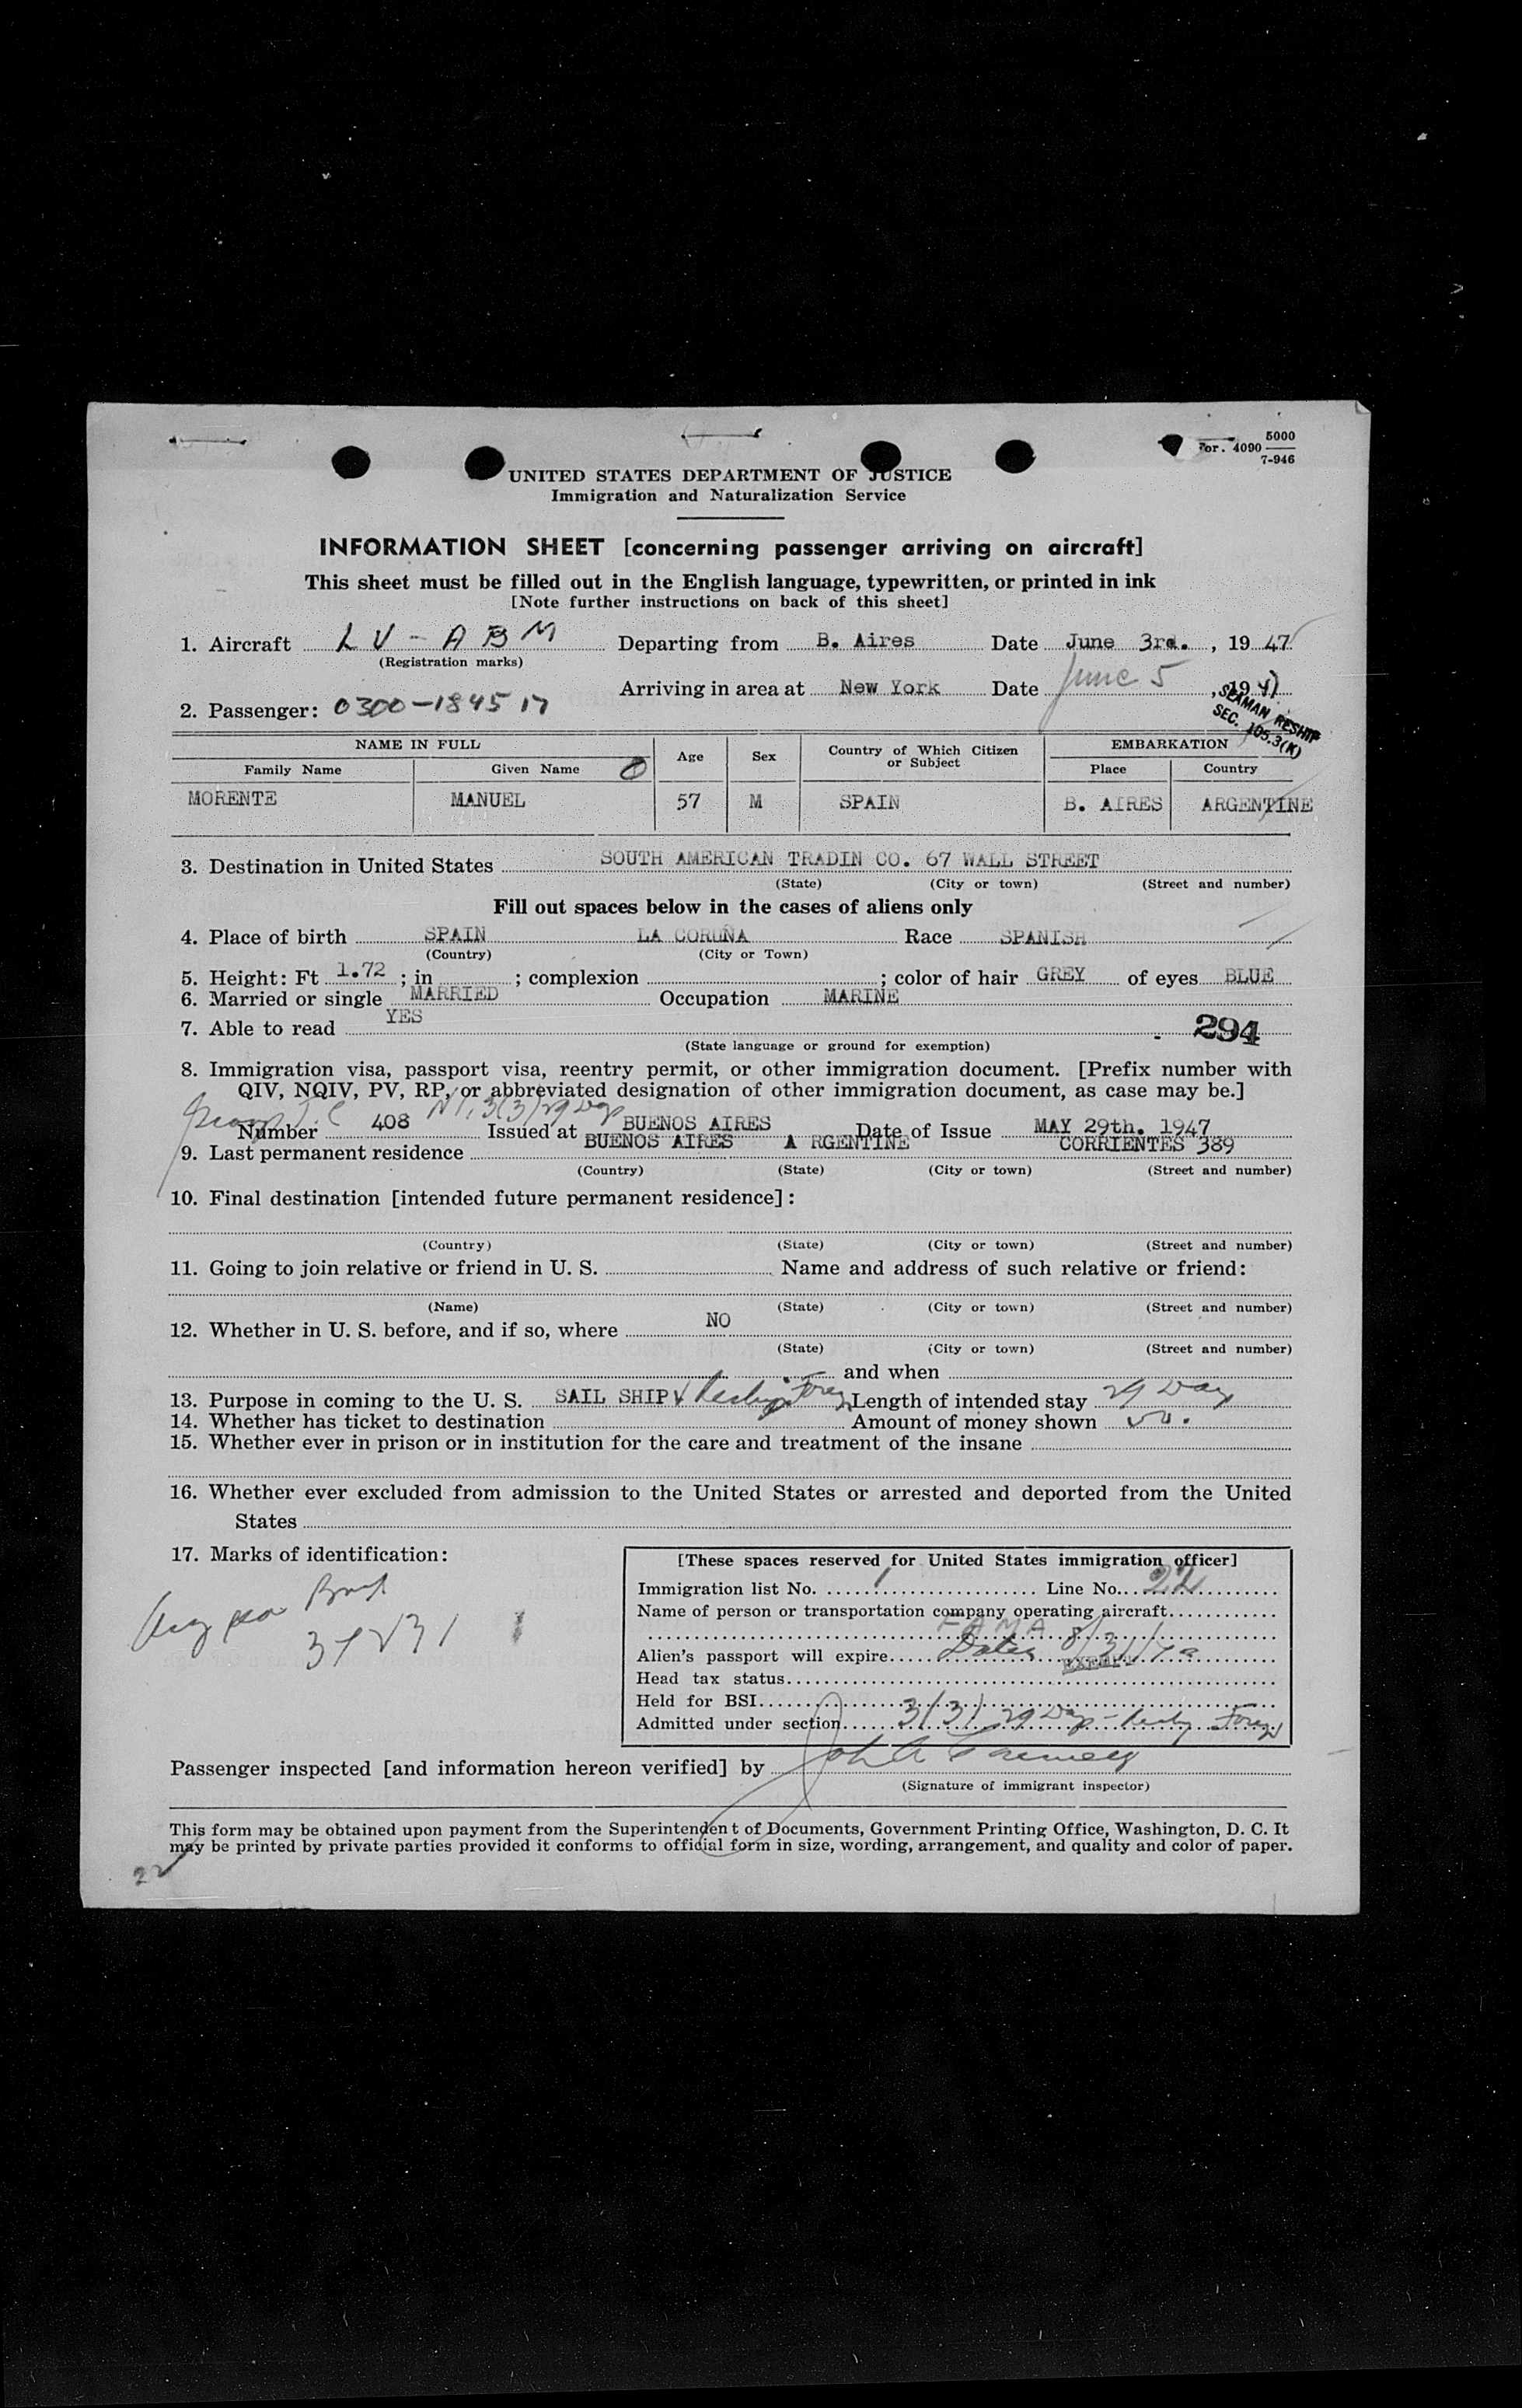 For. 4090 5000
7-946
UNITED STATES DEPARTMENT OF JUSTICE
Immigration and Naturalization Service
INFORMATION SHEET [concerning passenger arriving on aircraft]
This sheet must be filled out in the English language, typewritten, or printed in ink
[Note further instructions on back of this sheet]
1. Aircraft LV-ABM Departing from B. Aires Date June 3rd., 1947
(Registration marks)
Arriving in area at New York Date June 5, 1947
2. Passenger: 0300-184517
SEAMAN RESHIP
SEC. 105.3(K)
NAME IN FULL Age Sex Country of Which Citizen or Subject EMBARKATION
Family Name Given Name Place Country
MORENTE MANUEL 57 M SPAIN B. AIRES ARGENTINE
3. Destination in United States SOUTH AMERICAN TRADIN CO. 67 WALL STREET
(State) (City or town) (Street and number)
Fill out spaces below in the cases of aliens only
4. Place of birth SPAIN LA CORUÑA Race SPANISH
(Country) (City or Town)
5. Height: Ft 1.72 ; in ; complexion ; color of hair GREY of eyes BLUE
6. Married or single MARRIED Occupation MARINE
7. Able to read YES
294
(State language or ground for exemption)
8. Immigration visa, passport visa, reentry permit, or other immigration document. [Prefix number with
QIV, NQIV, PV, RP, or abbreviated designation of other immigration document, as case may be.]
3(3) 29 Days
Number 408 Issued at BUENOS AIRES Date of Issue MAY 29th. 1947
9. Last permanent residence BUENOS AIRES A RGENTINE CORRIENTES 389
(Country) (State) (City or town) (Street and number)
10. Final destination [intended future permanent residece]:
(Country) (State) (City or town) (Street and number)
11. Going to join relative or friend in U. S. Name and address of such relative or friend:
(Name) (State) (City or town) (Street and number)
12. Whether in U. S. before, and if so, where NO
(State) (City or town) (Street and number)
and when
13. Purpose in coming to the U. S. SAIL SHIP Length of intended stay 29 Days
14. Whether has ticket to destination Amount of money shown 50.
15. Whether ever in prison or in institution for the care and treatment of the insane
16. Whether ever excluded from admission to the United States or arrested and deported from the United
States
17. Marks of identification:
[These spaces reserved for United States immigration officer]
Immigration list No. 1 Line No. 22
Name of person or transportation company operating aircraft
FAMA
Alien's passport will expire
Head tax status EXEMPT
Held for BSI
Admitted under section 3(3) 29 Days -
Passenger inspected [and information hereon verified] by
(Signature of immigrant inspector)
This form may be obtained upon payment from the Superintendent of Documents, Government Printing Office, Washington, D. C. It
may be printed by private parties provided it conforms to official form in size, wording, arrangement, and quality and color of paper.
22